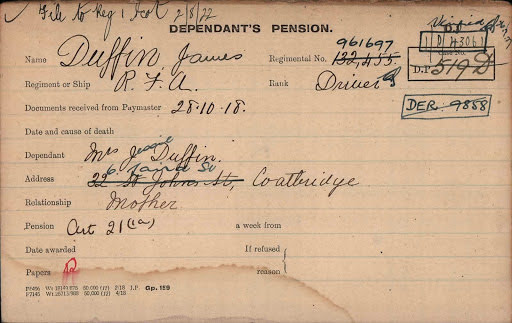 File to Reg 1 Scot 2/8/22
DEPENDANT'S PENSION.
1D 43061
Name Duffin, James
961697
Regimental No. 132,455
Case No.
D.P. 519 D
Regiment or Ship R. F. A.
Rank Driver
Documents received from Paymaster 28.10.18.
DER. 9858
Date and cause of death
Dependant Mrs Duffin.
Address 22 St Johns St, Coatbridge
Relationship Mother
Pension Art 21 (1a) a week from
Date awarded If refused
Papers reason
P2456 50,000 (12) 2/18 J.P. Gp. 159
P7145 50,000 (12) 4/18